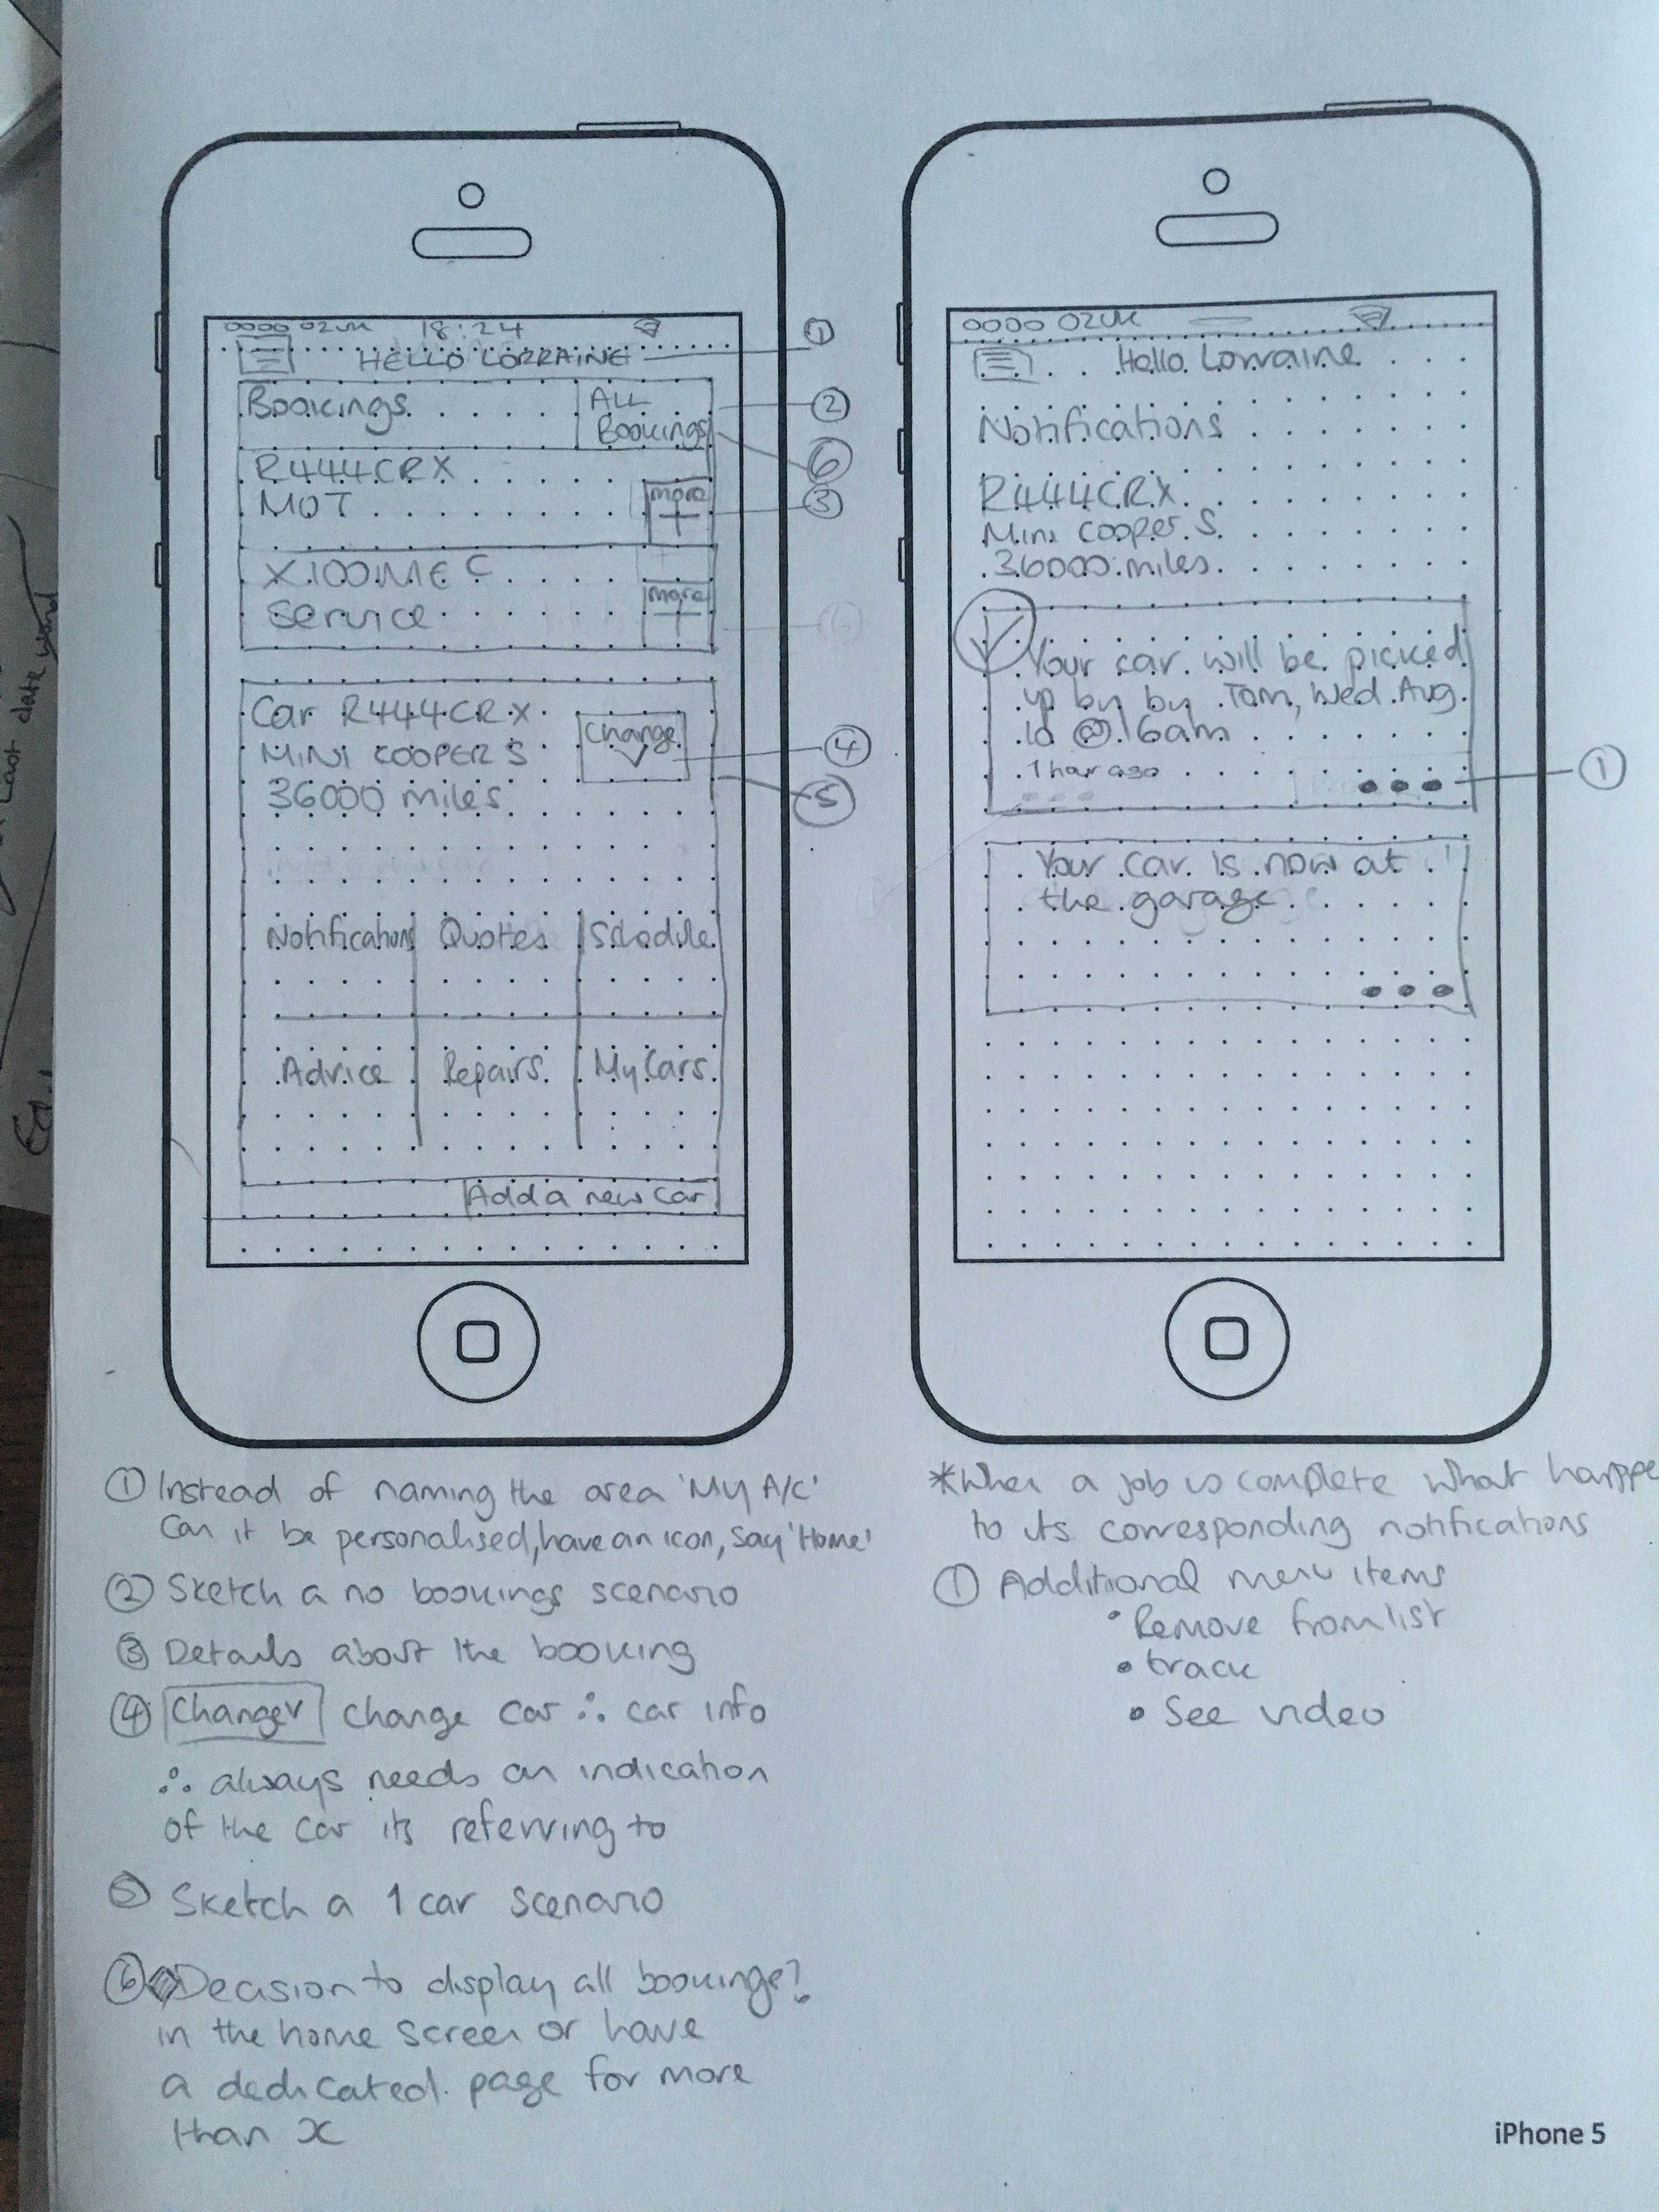 0000 02UK 18:24
HELLO LORRAINE
①
Bookings
ALL
Bookings
②
⑥
R444CRX
MOT
more
+
③
X100MEC
Service
more
+
④
Car R444CRX
MINI COOPER S
36000 miles
Change
④
⑤
Notifications Quotes Schedule
Advice Repairs My Cars
Add a new car
① Instead of naming the area 'My A/C'
Can it be personalised, have an icon, say 'Home'
② Sketch a no bookings scenario
③ Details about the booking
④ Change v change car ∴ car info
∴ always needs an indication
of the car its referring to
⑤ Sketch a 1 car scenario
⑥ Decision to display all bookings?
in the home screen or have
a dedicated page for more
than x
0000 02UK
Hello Lorraine
Notifications
R444CRX
Mini Cooper S
36000 miles
Your car will be picked
up by by Tom, Wed Aug
@ 16am
1 hour ago
①
Your car is now at
the garage
*When a job is complete what happe
to its corresponding notifications
① Additional menu items
• Remove from list
• track
• See video
iPhone 5
Last date